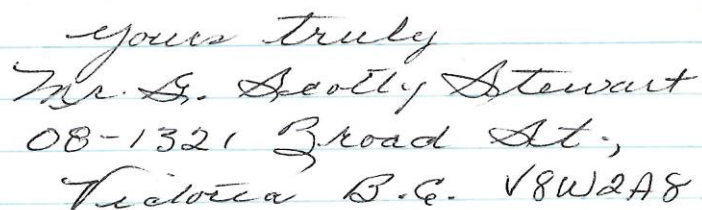 yours truly
Mr. G. Scotty Stewart
08-1321 Broad St.,
Victoria B.C. V8W2A8